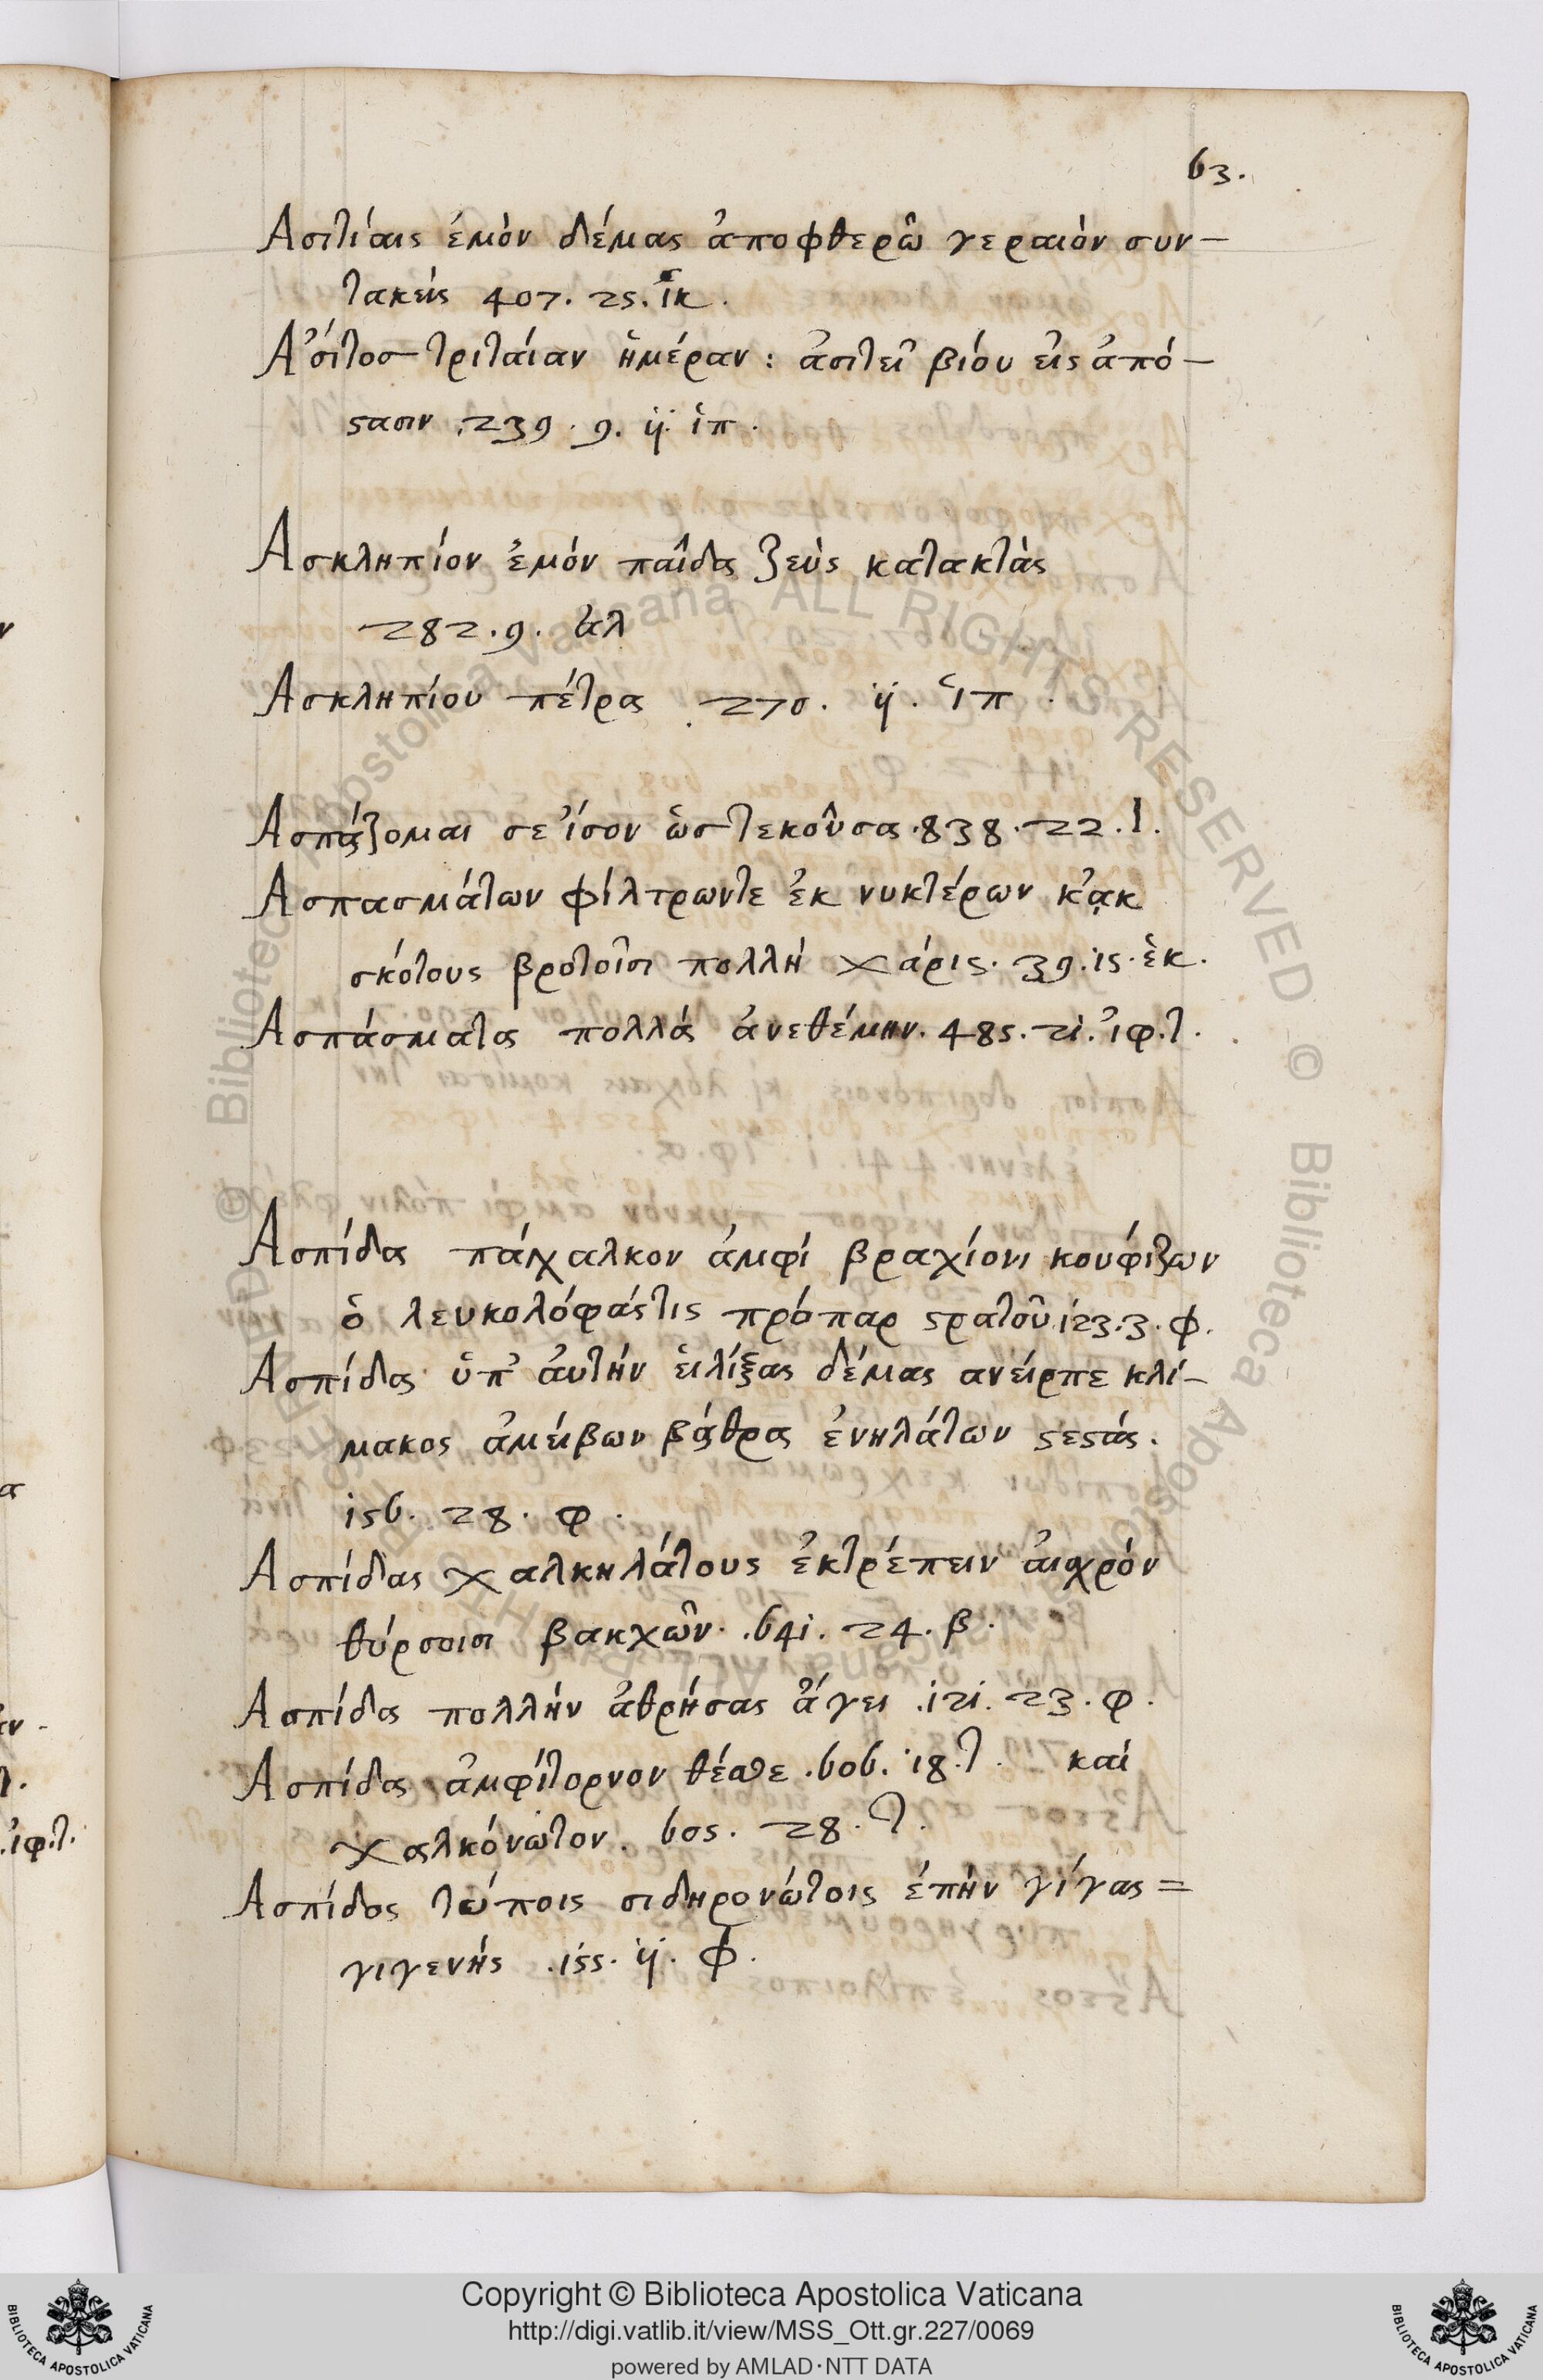 63.
Ασιτίαις ἐμὸν δέμας ἀποφθερῶ γεραιὸν συν-
τακείς 407. 25. ἱκ.
Ἄσιτος τριταίαν ἡμέραν : ἀσιτεῖ βίου εἰς ἀπό-
ϛασιν . 239 . 9. ij. ἱπ.
Ασκληπίον ἐμόν παῖδα ζεὺς κατακτὰς
282 . 9 . ἀλ
Ασκληπίου πέτρα . 270 . ij . ἱπ .
Ασπάζομαι σε ἴσον ὡς τεκοῦσα . 838 . 22 . ἰ .
Ασπασμάτων φίλτρωντε ἐκ νυκτέρων κἀκ
σκότους βροτοῖσι πολλὴ χάρις . 39 . is . ἑκ .
Ασπάσματα πολλά ἀνεθέμην . 485 . 2i . ἰφ . τ .
Ασπίδα πάγχαλκον ἀμφί βραχίονι κουφίζων
ὁ λευκολόφάϛτις πρόπαρ ϛρατοῦ . i23 . 3 . φ .
Ασπίδα ὑπ' ἀυτήν εἱλίξας δέμας ανείρπε κλί-
μακος ἀμείβων βάθρα ἐνηλάτων ϛεϛάς .
is6 . 28 . φ .
Ασπίδας χαλκηλάτους ἐκτρέπειν ἀισχρόν
θύρσοισι βακχῶν . 64i . 24 . β .
Ασπίδα πολλήν ἀθρήσας ἄγει . i2i . 23 . φ .
Ασπίδα ἀμφίτορνον θέασθε . 606 . i8 . τ . καί
χαλκόνωτον . 605 . 28 . τ .
Ασπίδος τύποις σιδηρονώτοις ἐπῆν γίγας =
γιγενής . iss . ij . φ .
Copyright © Biblioteca Apostolica Vaticana
http://digi.vatlib.it/view/MSS_Ott.gr.227/0069
powered by AMLAD·NTT DATA